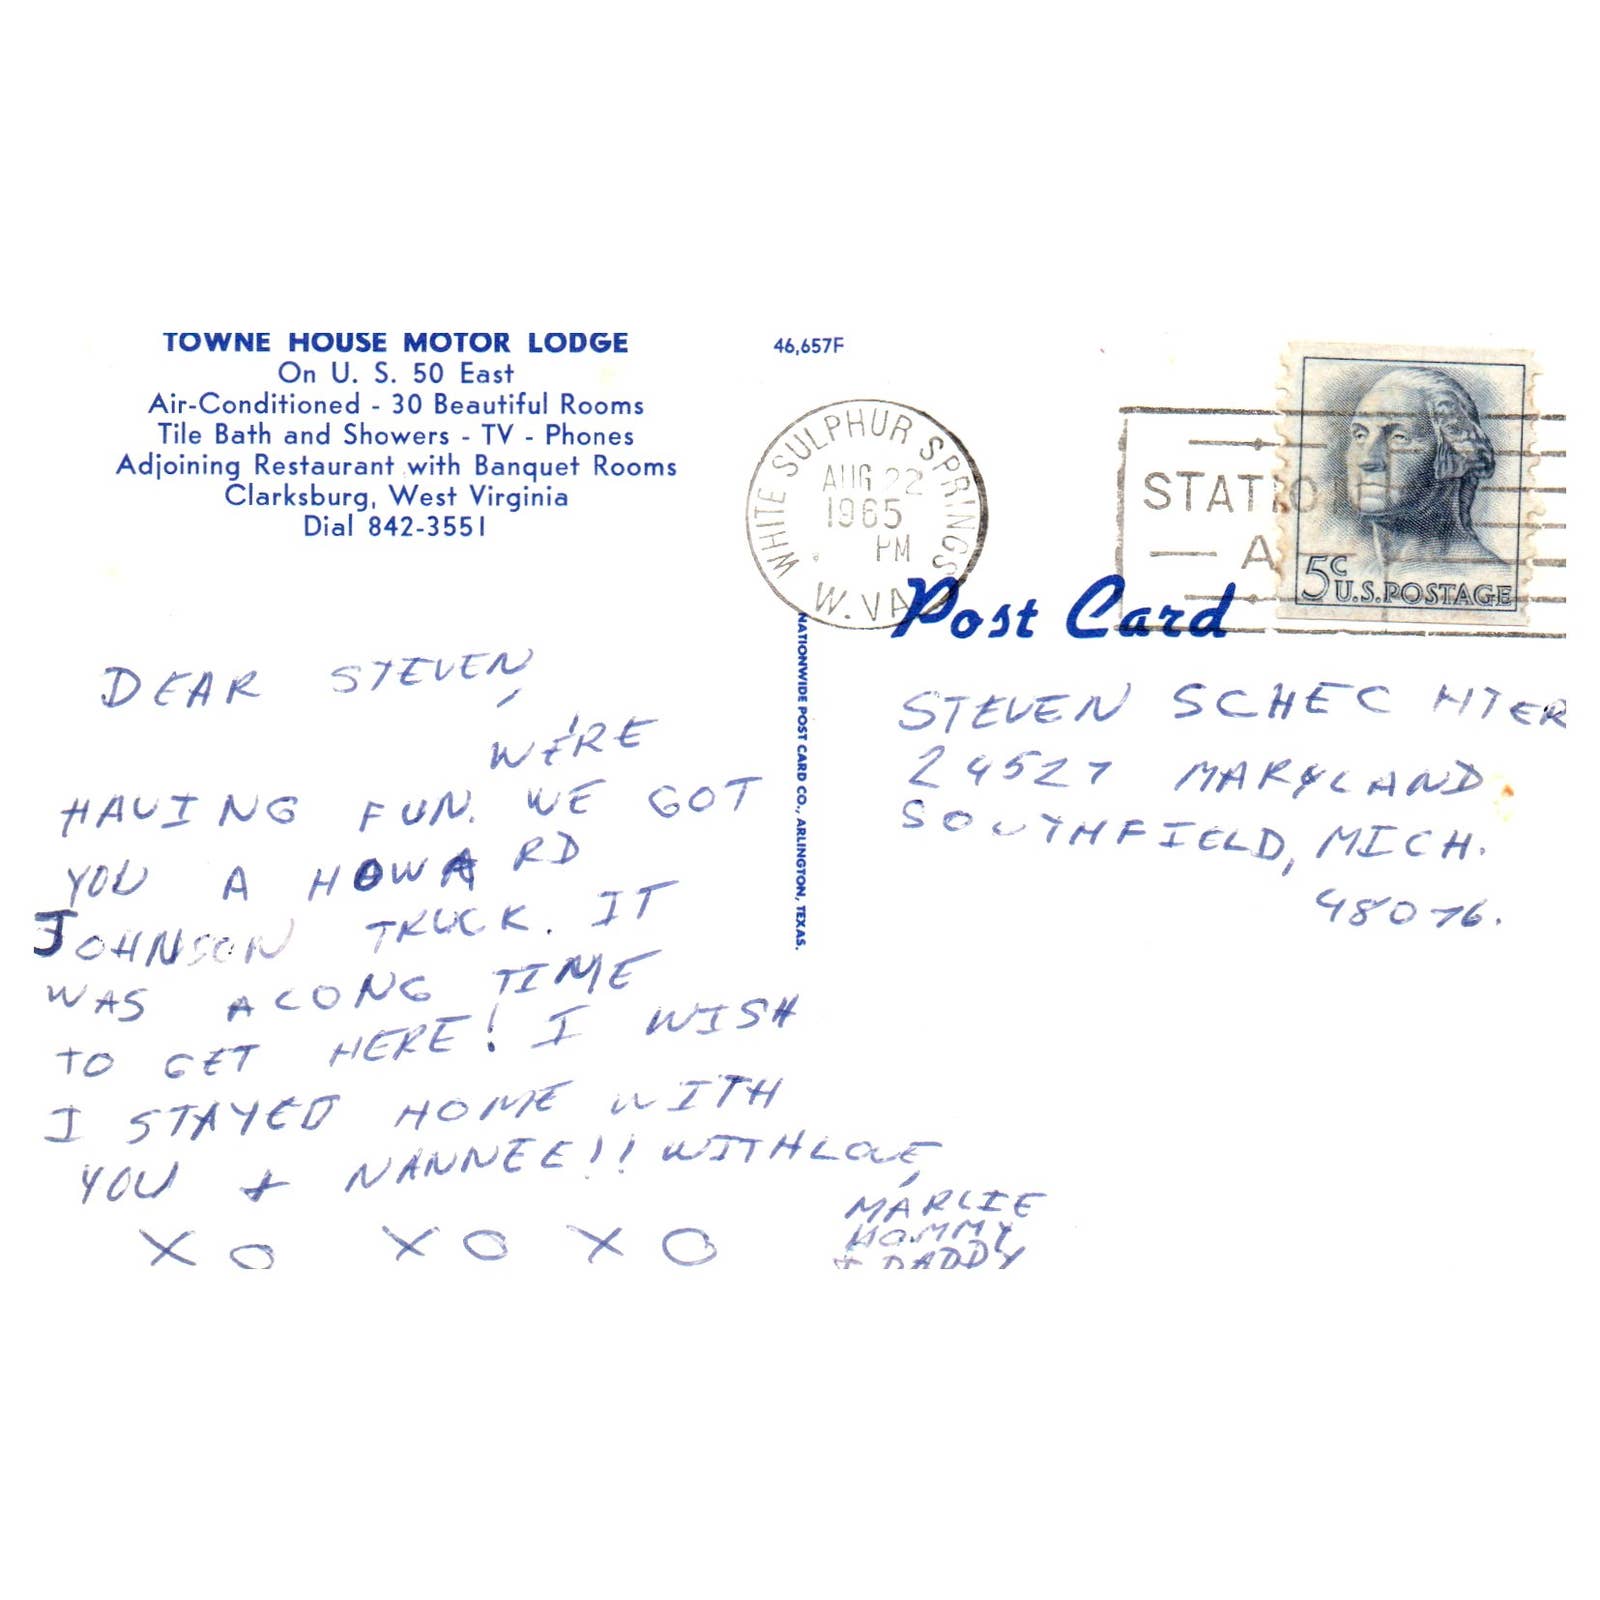 TOWNE HOUSE MOTOR LODGE
On U. S. 50 East
Air-Conditioned - 30 Beautiful Rooms
Tile Bath and Showers - TV - Phones
Adjoining Restaurant with Banquet Rooms
Clarksburg, West Virginia
Dial 842-3551
46,657F
WHITE SULPHUR SPRINGS
AUG 22
1965
PM
W. VA
STATIO
A
5c
U.S. POSTAGE
Post Card
NATIONWIDE POST CARD CO., ARLINGTON, TEXAS.
DEAR STEVEN,
WE'RE
HAVING FUN. WE GOT
YOU A HOWARD
JOHNSON TRUCK. IT
WAS A LONG TIME
TO GET HERE! I WISH
I STAYED HOME WITH
YOU + NANNEE!! WITH LOVE,
MARLIE
MOMMY
+ DADDY
XO XO XO
STEVEN SCHECHTER
24527 MARYLAND
SOUTHFIELD, MICH.
48076.